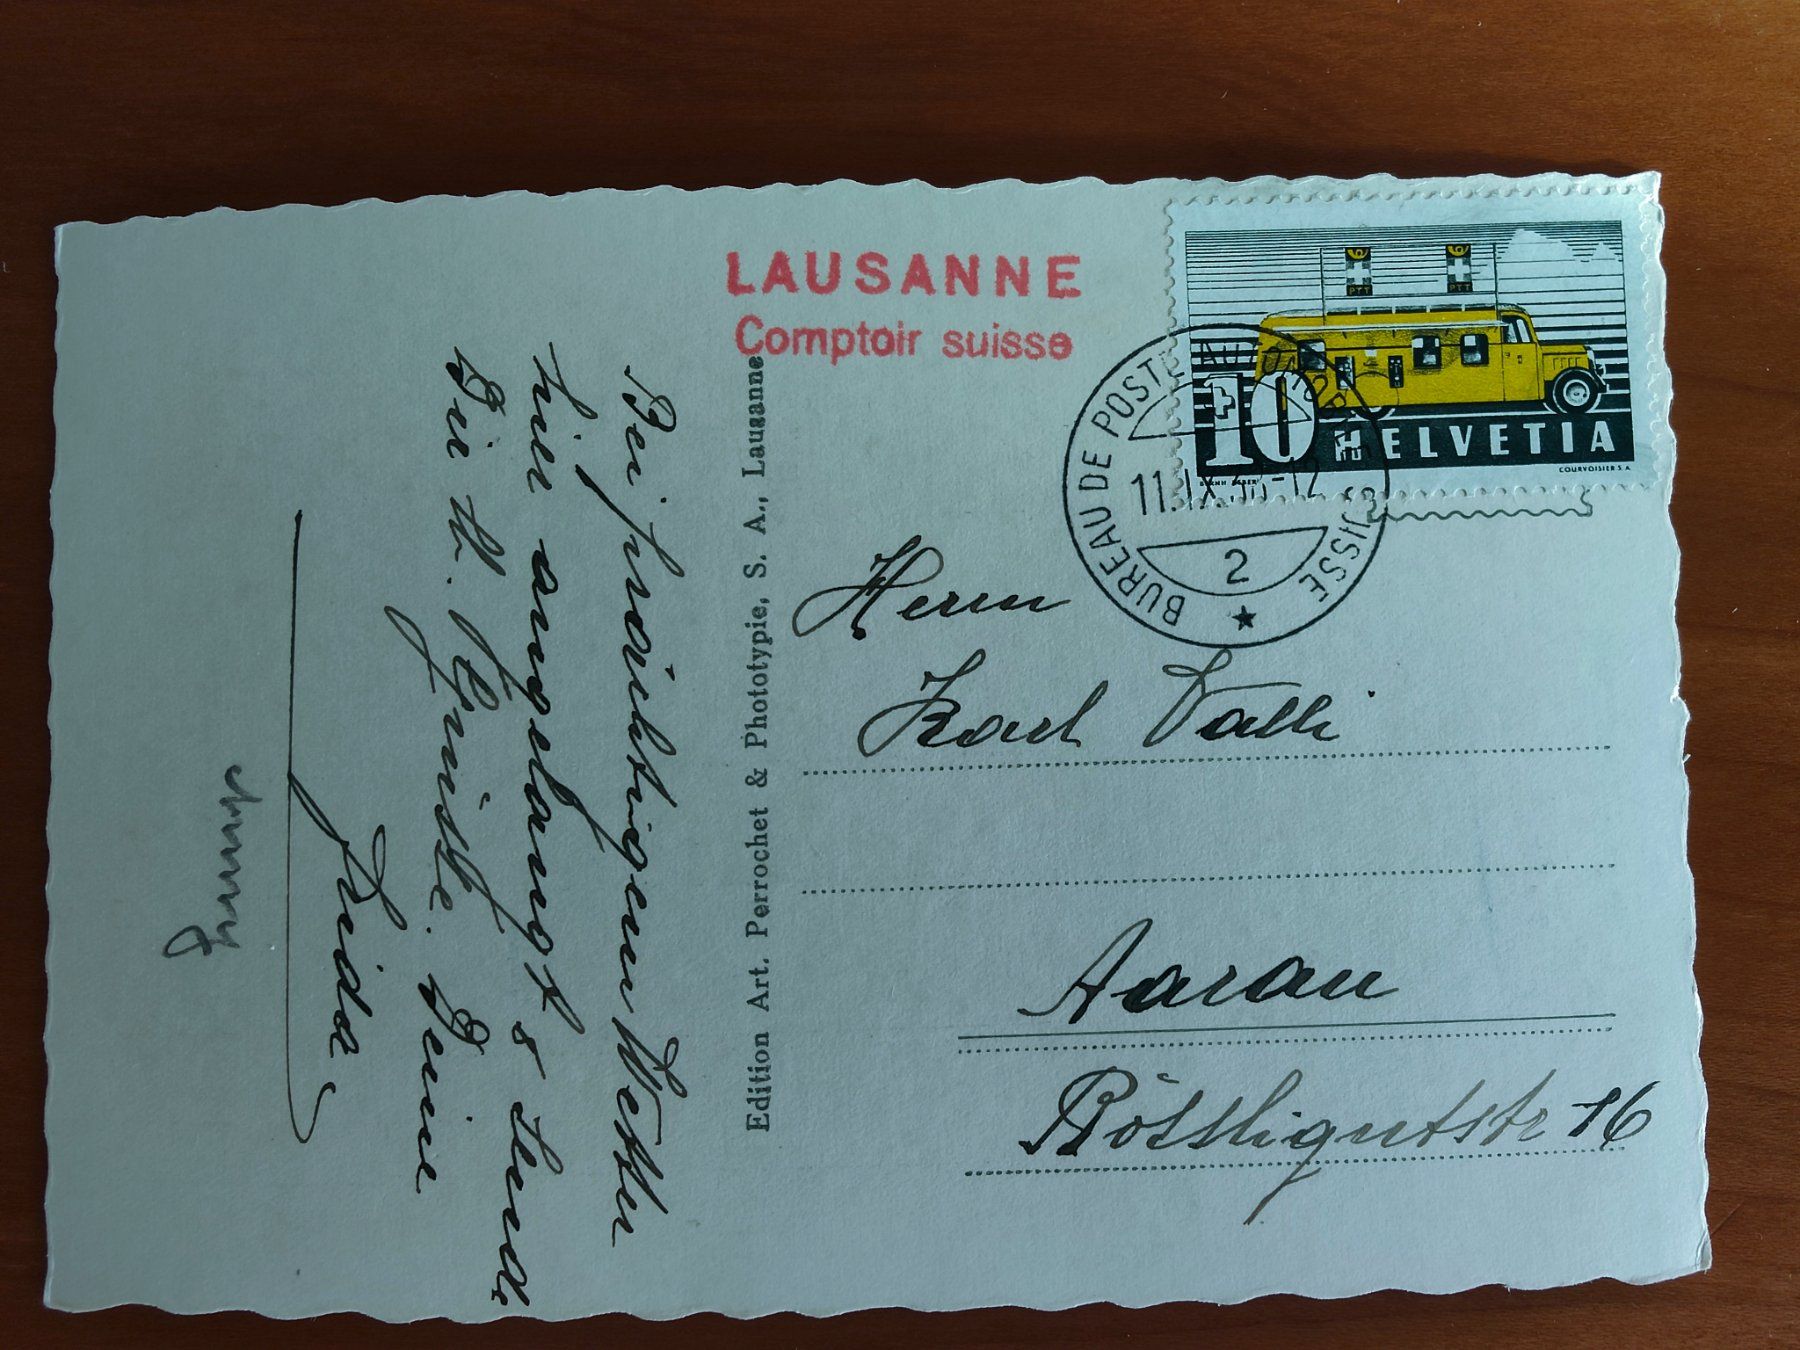 LAUSANNE
Comptoir suisse
PTT PTT
10 HELVETIA
COURVOISIER S.A.
BUREAU DE POSTE AUTOMOBILE SUISSE
11.IX. -12
2
Bei prächtigem Wetter
hier angelangt sende
Dir lb. Grüsse. Deine
Frida
Edition Art. Perrochet & Phototypie, S. A., Lausanne
Herrn
Karl Valli
Aarau
Rössligutstr 16